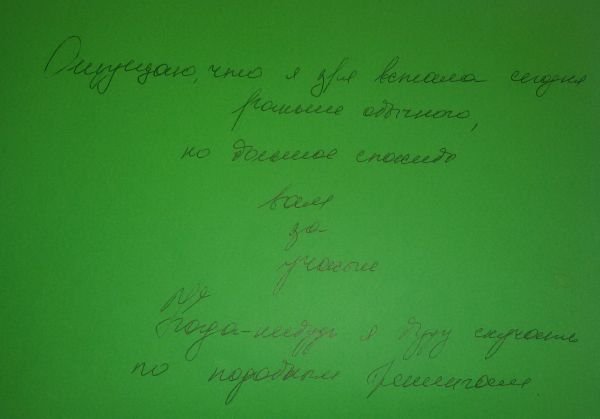 Ощущаю, что я зря встала сегодня
раньше обычного,
но большое спасибо
вам
за
участие
PS
Когда-нибудь я буду скучать
по подобным тренингам